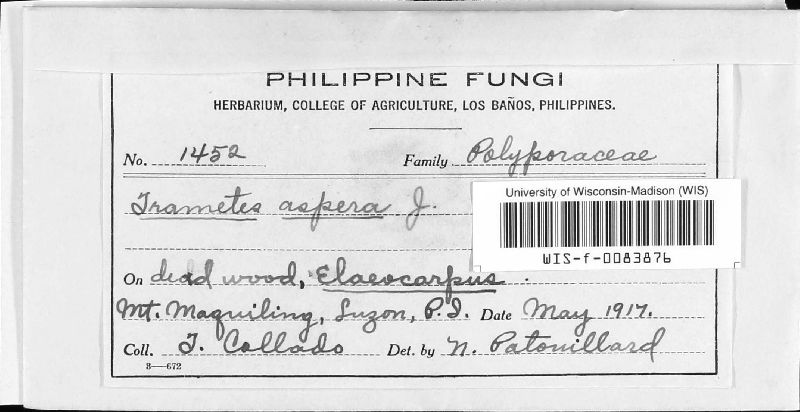 PHILIPPINE FUNGI
HERBARIUM, COLLEGE OF AGRICULTURE, LOS BAÑOS, PHILIPPINES.
No. 1452 Family Polyporaceae
Trametes aspera J.
University of Wisconsin-Madison (WIS)
WIS-f-0083876
On dead wood, Elaeocarpus.
Mt. Maquiling, Luzon, P.I. Date May 1917.
Coll. T. Collado Det. by N. Patouillard
3—672